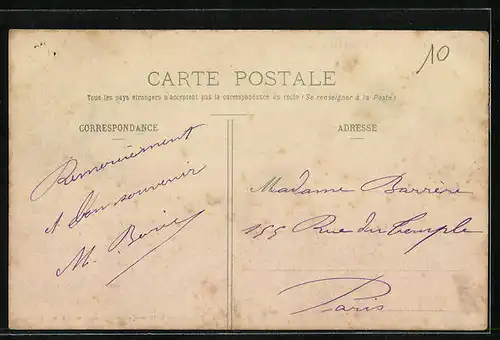 10
CARTE POSTALE
Tous les pays étrangers n'acceptent pas la correspondance au recto (Se renseigner à la Poste)
CORRESPONDANCE
Remerciement
et bon souvenir
M.
ADRESSE
Madame Barrère
155 Rue du Temple
Paris